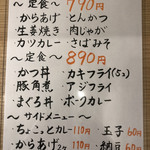 ～定食～ 790円
・からあげ ・とんかつ
・生姜焼き ・肉じゃが
・カツカレー ・さばみそ
～定食～ 890円
・かつ丼 ・カキフライ(5コ)
・豚角煮 ・アジフライ
・まぐろ丼 ・ポークカレー
～サイドメニュー～
・ちょこっとカレー 110円 ・玉子 60円
・からあげ2ケ 110円 ・納豆 60円